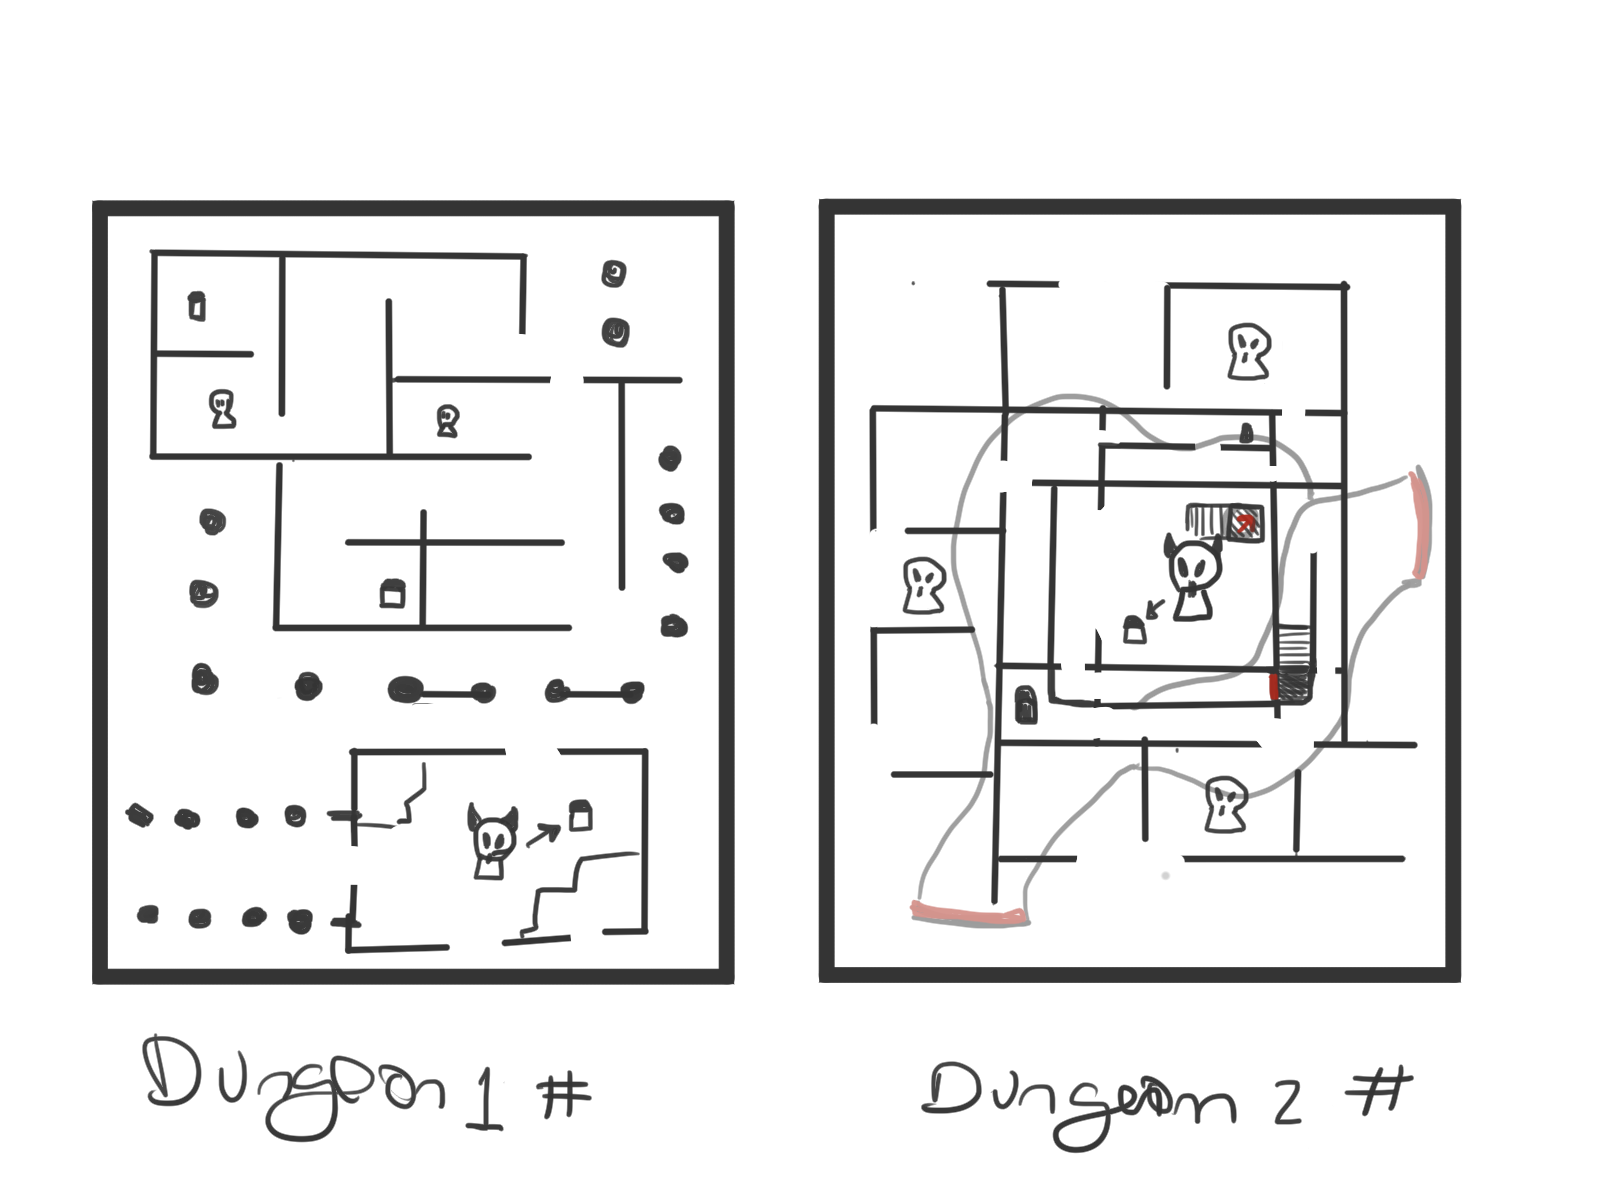 Dungeon 1 #
Dungeon 2 #